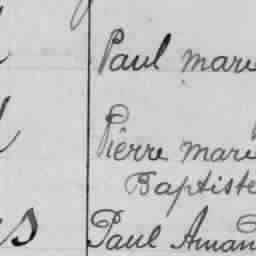 Paul mari
Pierre mari
Baptiste
Paul Aman